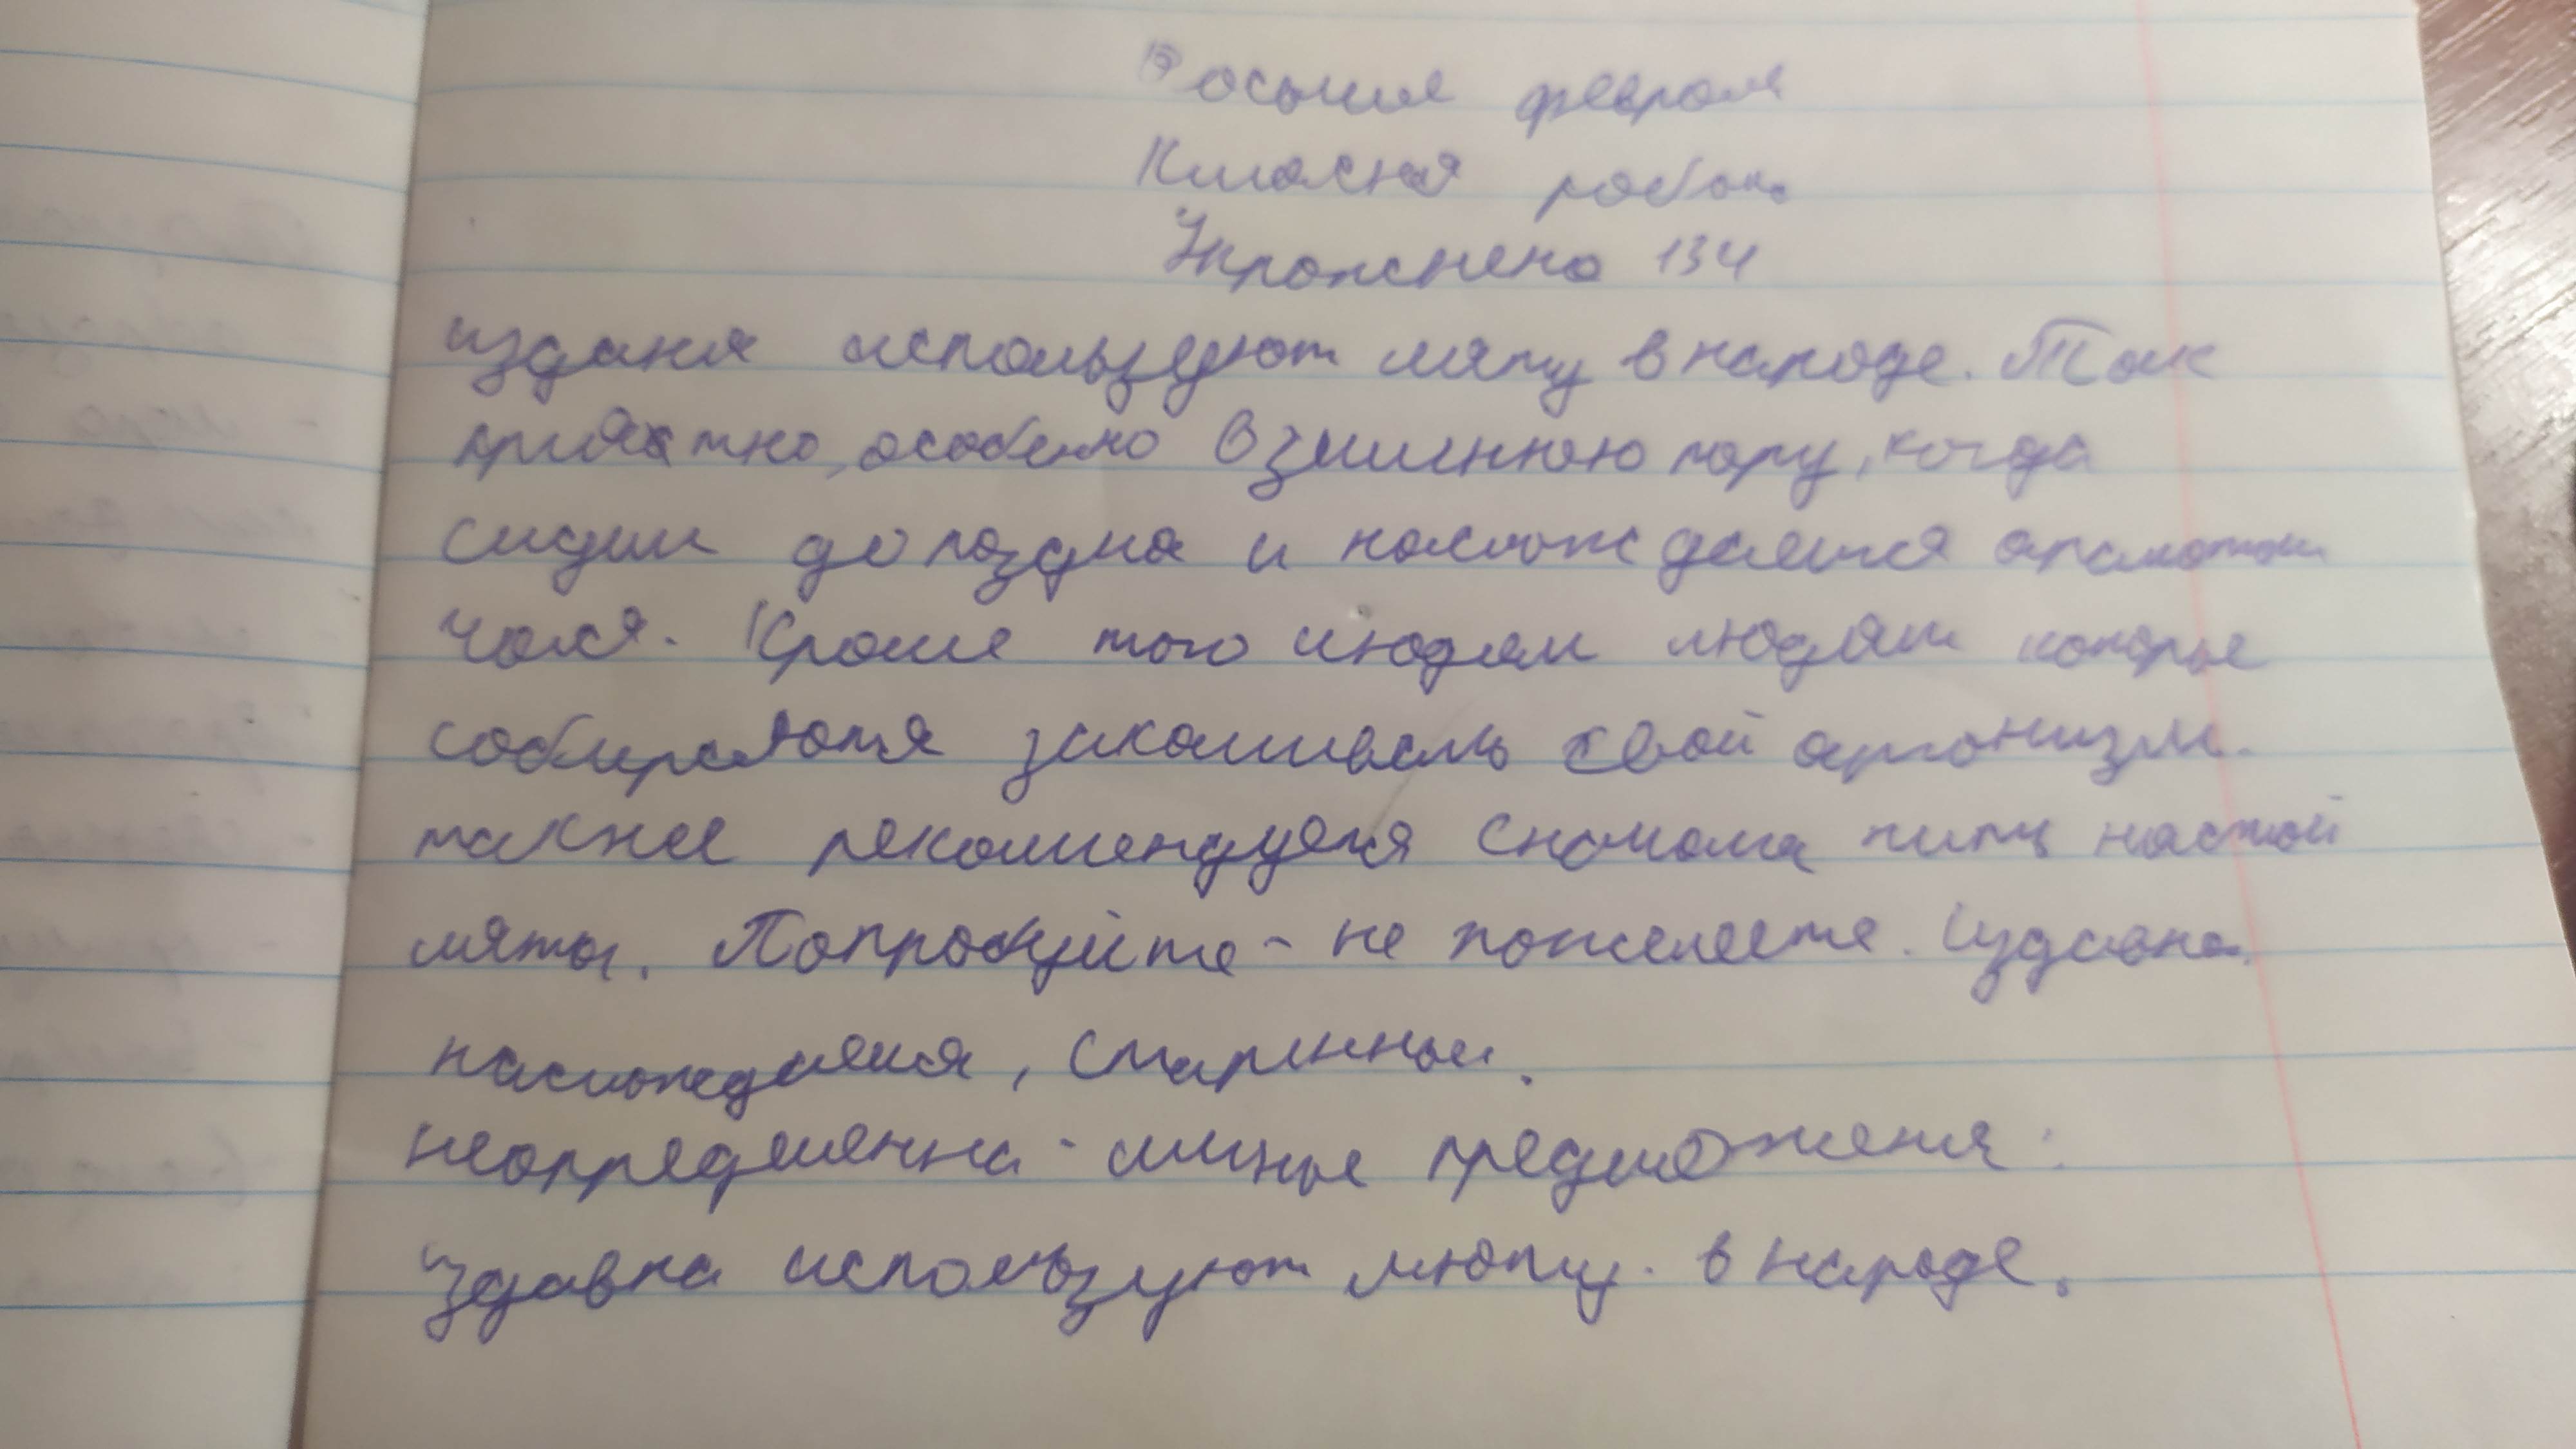 Восьмие февраля
Класная работа
Упрожнено 134
издання используют мяту в народе. Так
приятно, особено в зимнюю пору, когда
сидим до поздна и наслождаемся ароматом
чася. Кроме того людям людям которые
собираются закаливать свой организм.
также рекомендуется сначала пить настой
мяты. Попробуйте - не пожелеете. Издавна
наслождаемся, старинным.
неопределенна - личные предложеня:
здавна используют мюту. в народе.